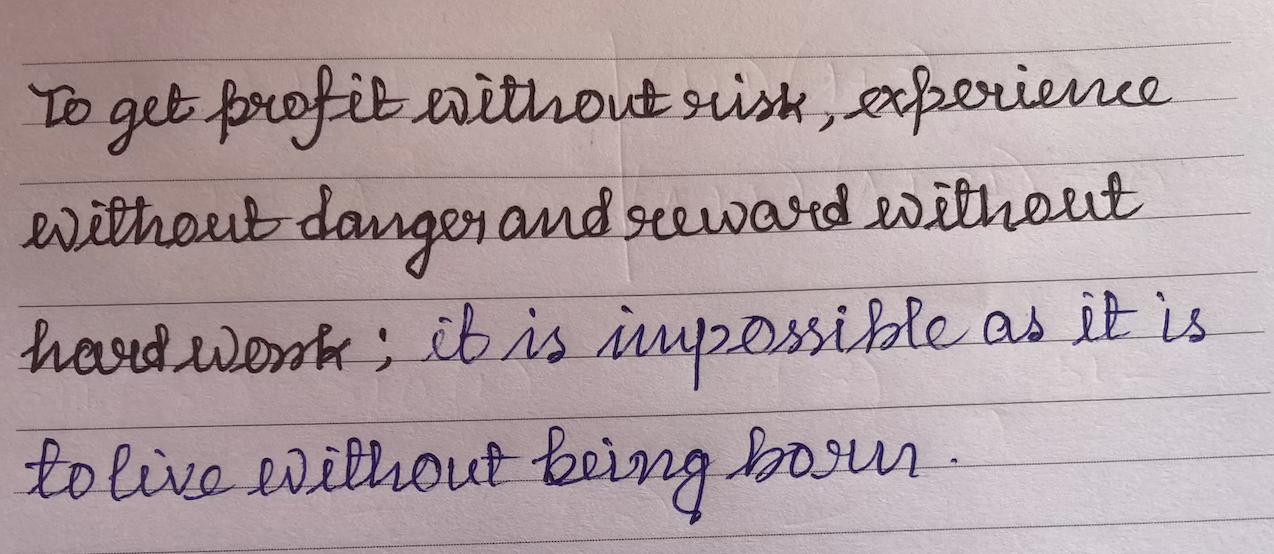 To get profit without risk, experience
without danger and reward without
hard work; it is impossible as it is
to live without being born.